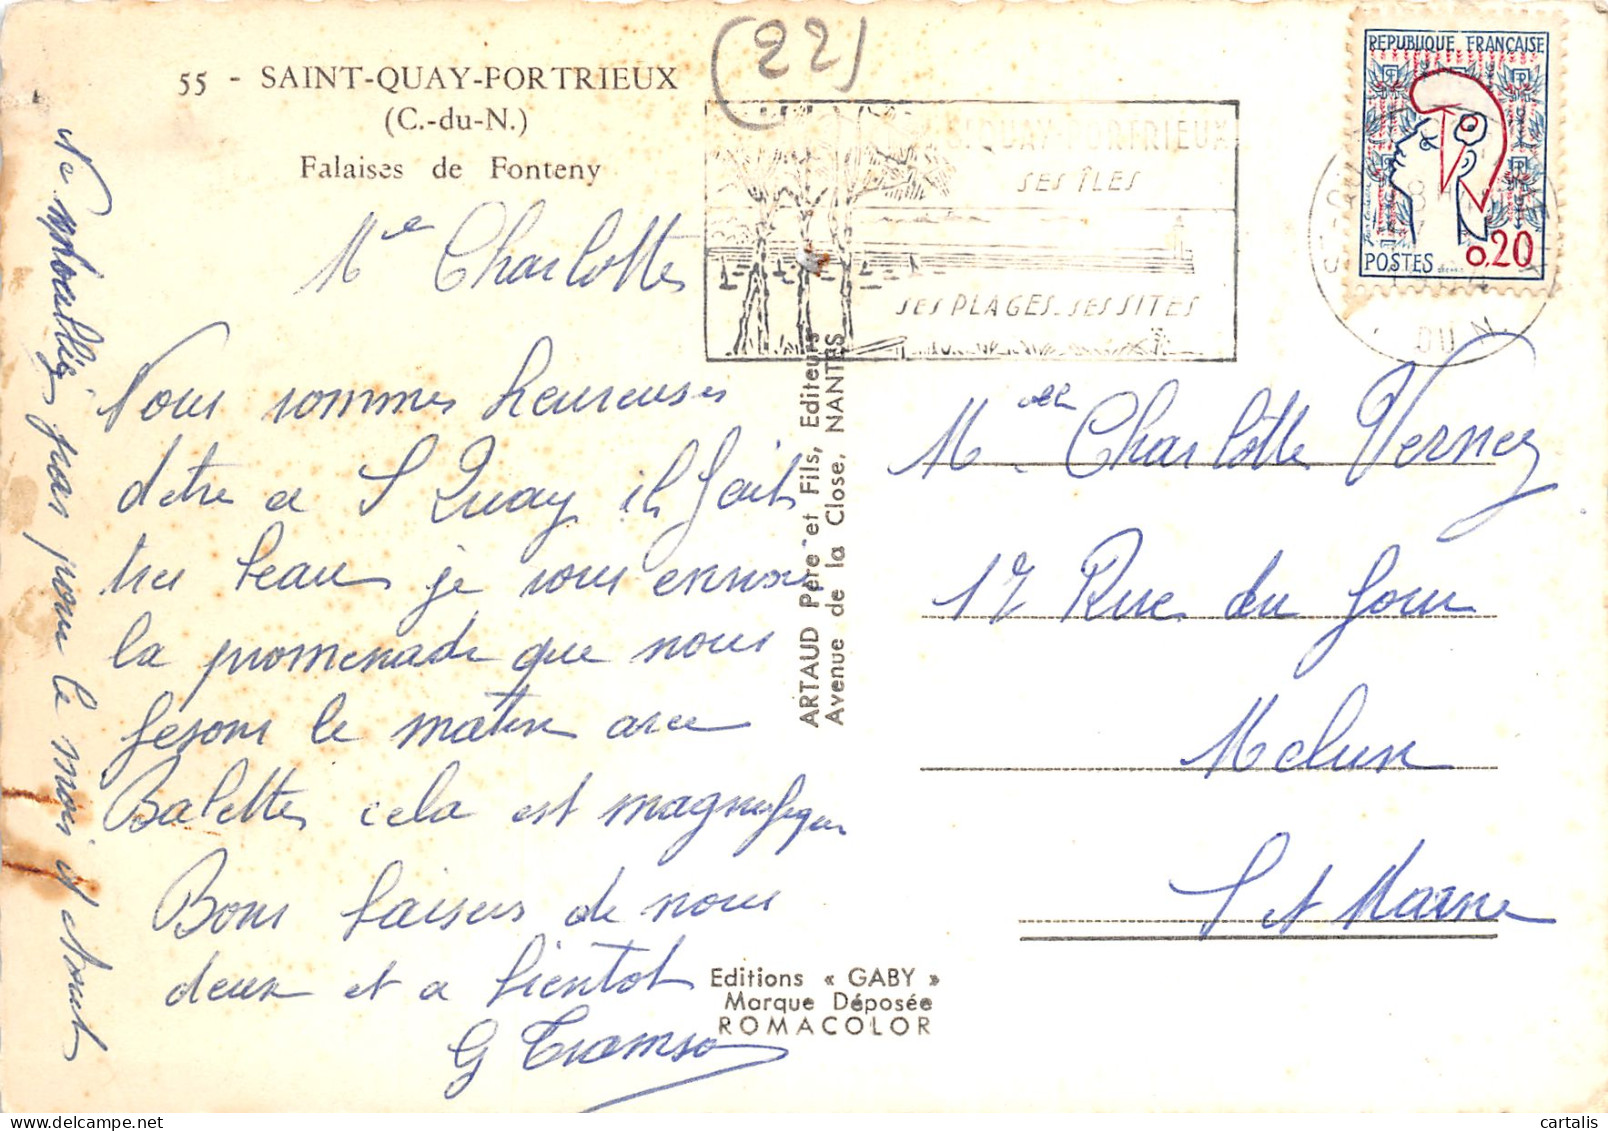 (22)
55 - SAINT-QUAY-PORTRIEUX
(C.-du-N.)
Falaises de Fonteny
Mle Charlotte
Nous sommes heureuses
detre a S Quay il fait
tres beau je vous
la promenade que nous
fesons le matin avec
Balette cela est magnifique
Bons baisers de nous
deux et a bientot
G
Ne m'oubliez pas pour le mois d
S QUAY-PORTRIEUX
SES ÎLES
SES PLAGES_SES SITES
REPUBLIQUE FRANÇAISE
POSTES 0,20
DU N.
ARTAUD Père et Fils, Editeurs
Avenue de la Close, NANTES
Melle Charlotte Vernez
17 Rue du Four
Melun
S et Marne
Editions « GABY »
Marque Déposée
ROMACOLOR
cartalis